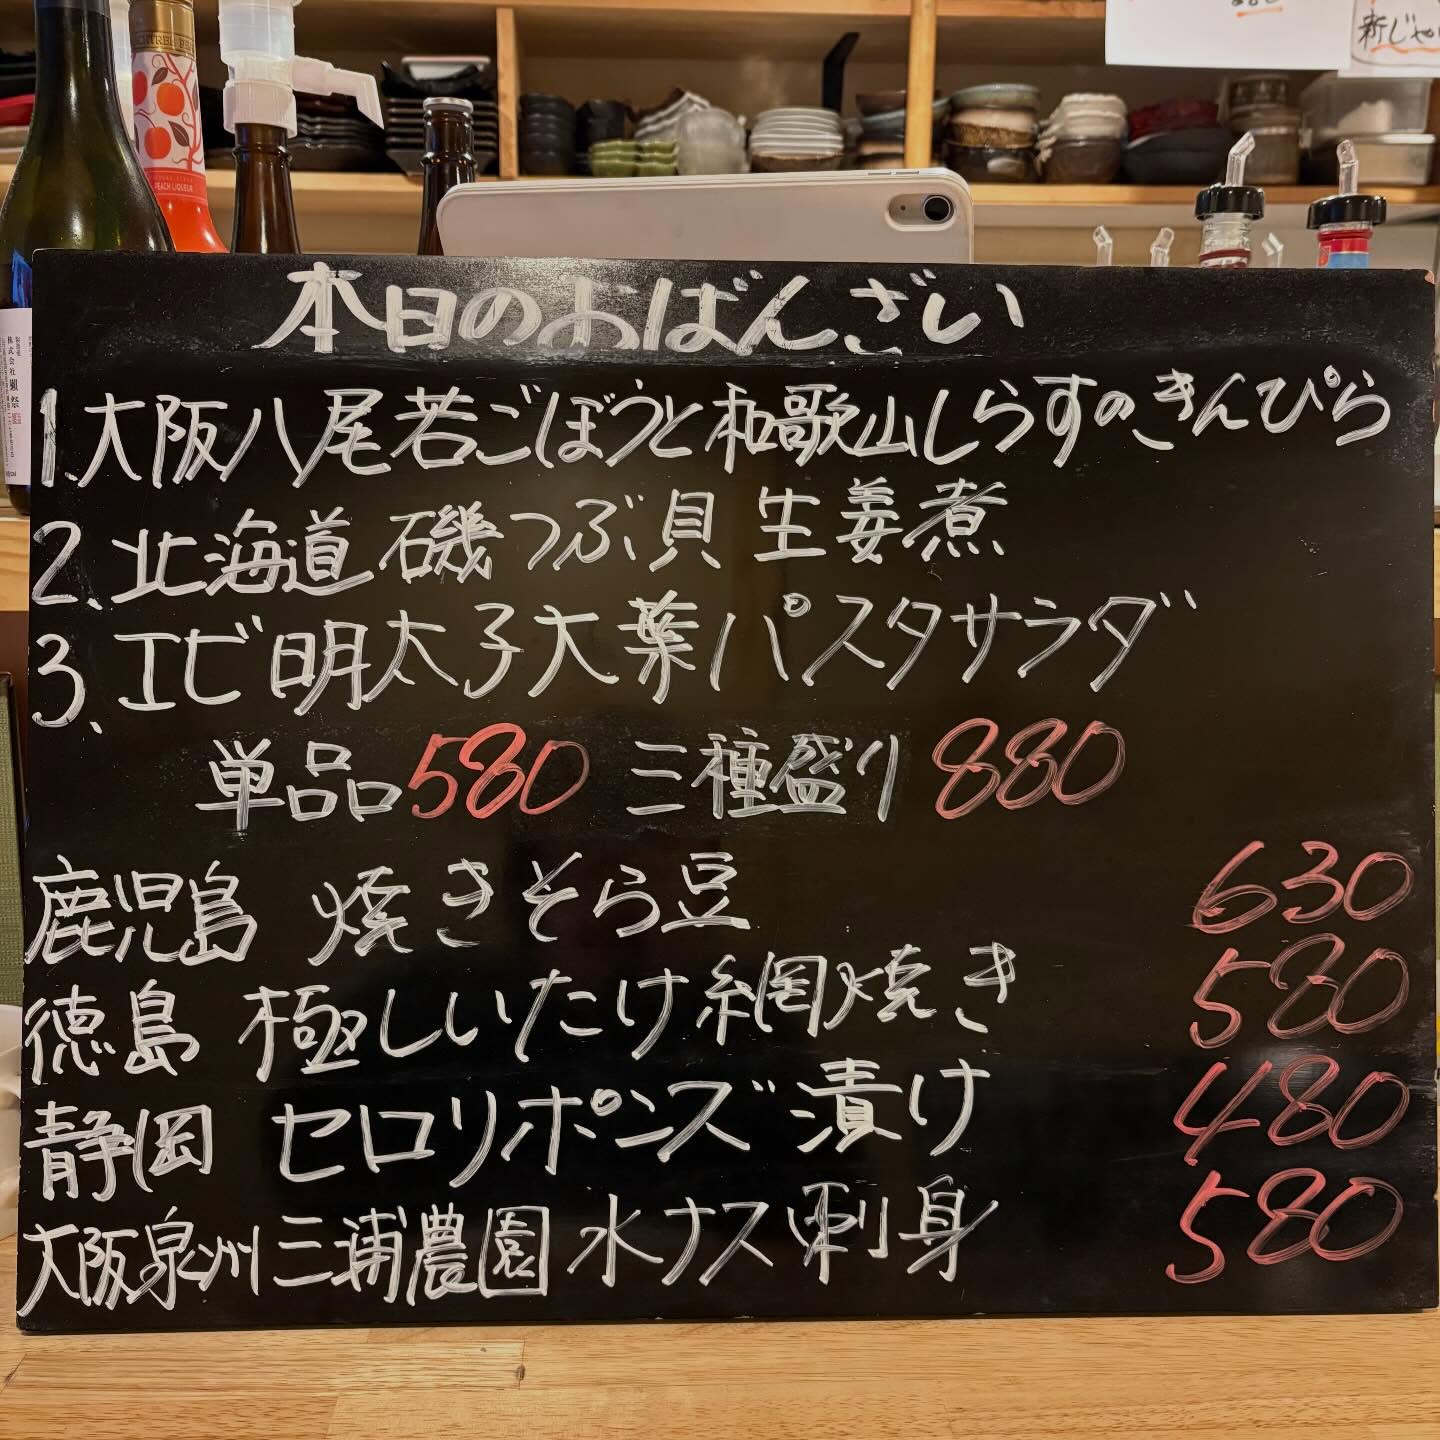 新じゃ
PEACH LIQUEUR
株式会社 獺祭
本日のおばんざい
1.大阪八尾若ごぼうと和歌山しらすのきんぴら
2.北海道 磯つぶ貝 生姜煮
3.エビ明太子大葉パスタサラダ
単品580 三種盛り880
鹿児島 焼きそら豆 630
徳島 極しいたけ網焼き 580
静岡 セロリポンズ漬け 480
大阪泉州三浦農園 水ナス刺身 580